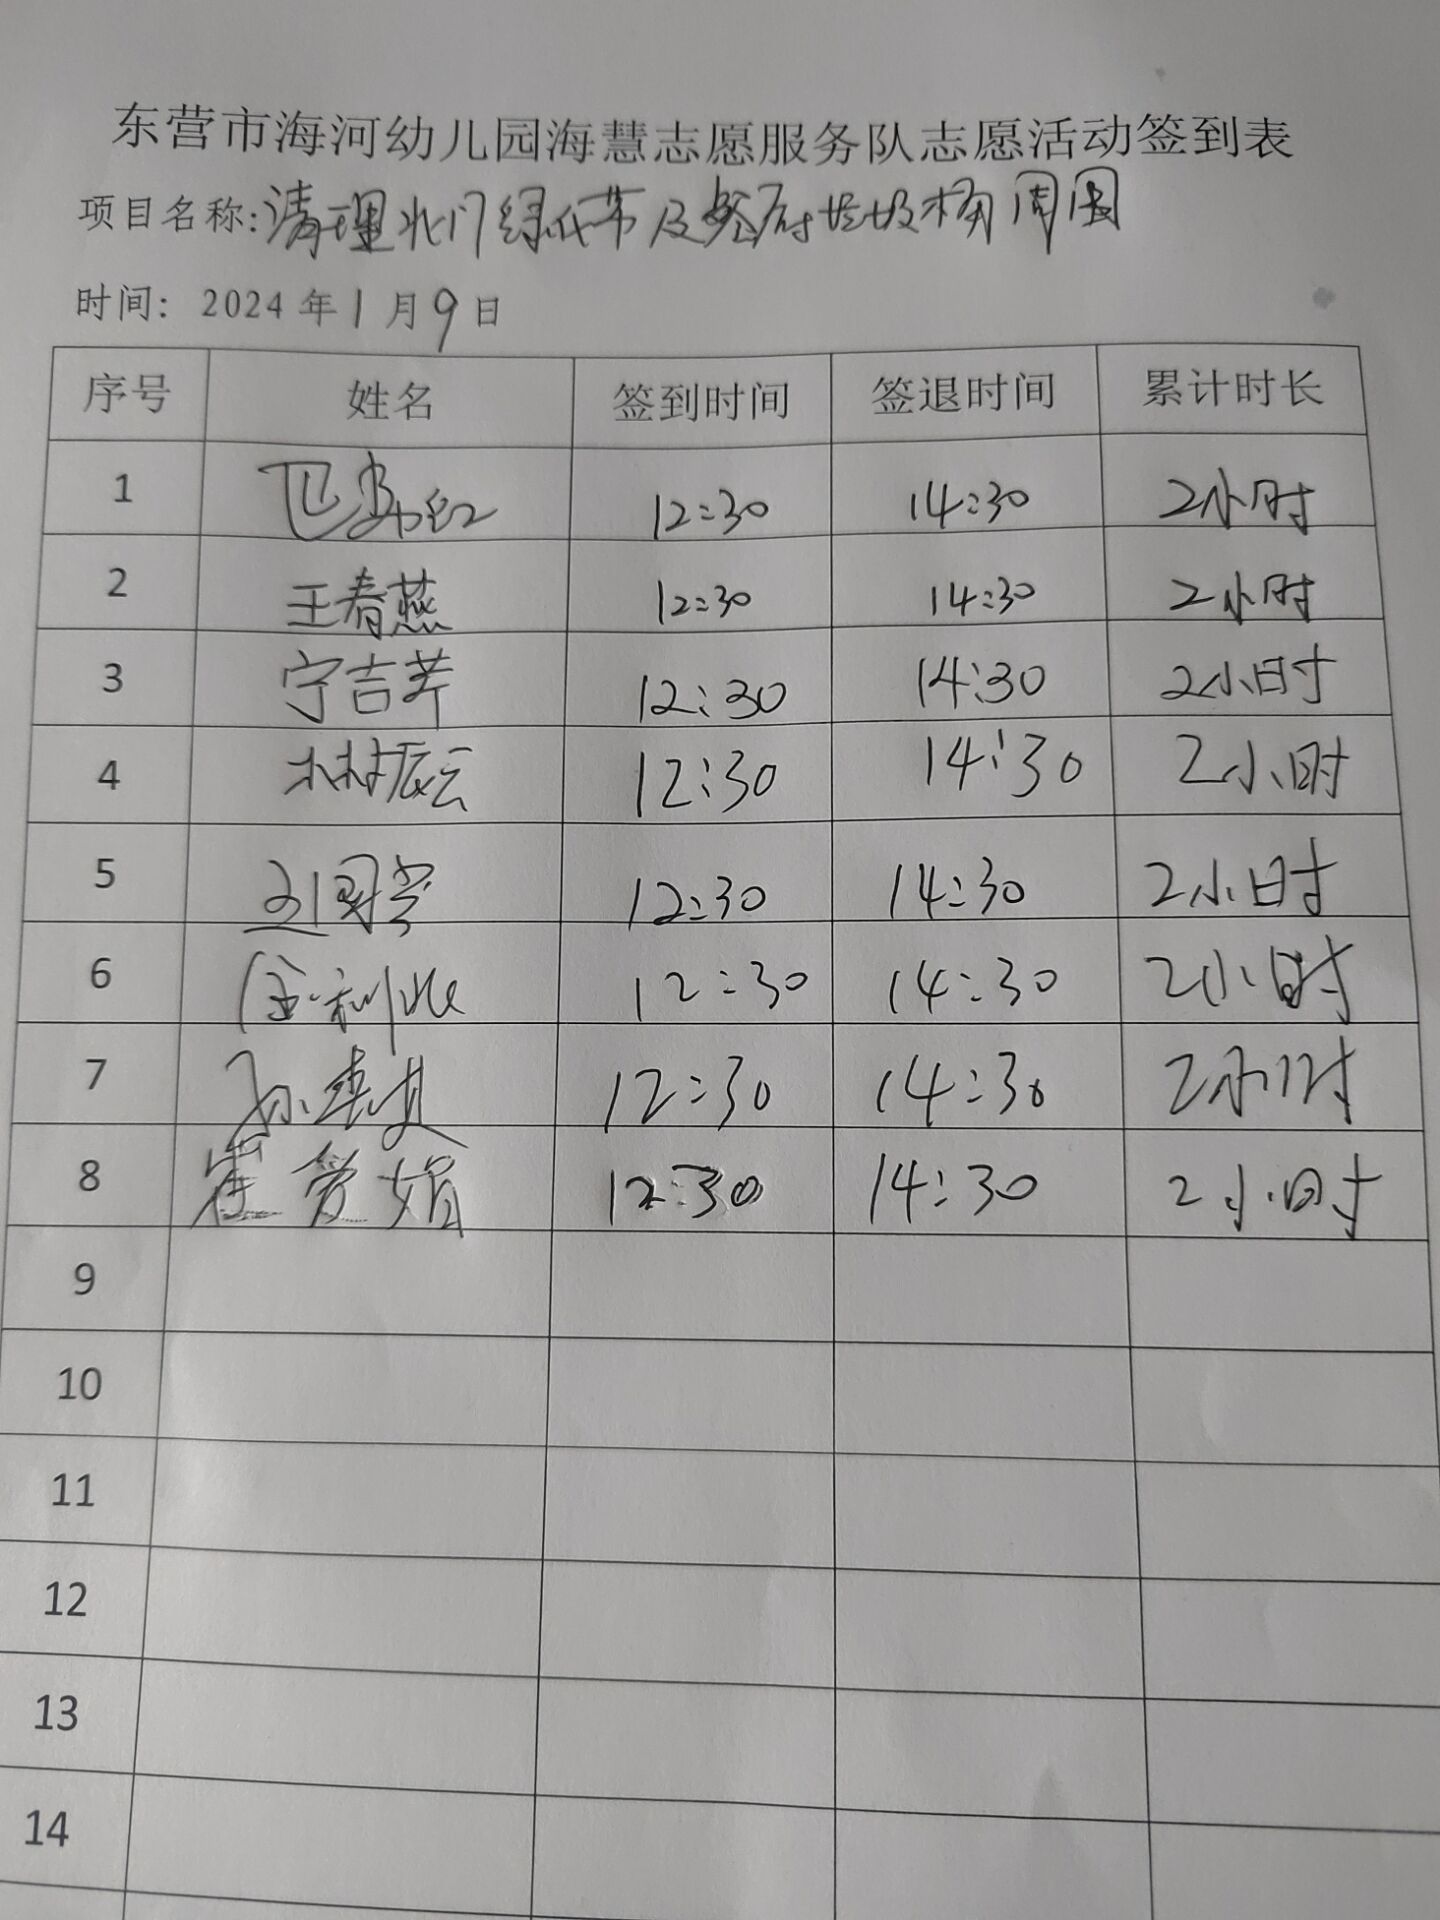 东营市海河幼儿园海慧志愿服务队志愿活动签到表
项目名称:清理北门绿化带及餐厨垃圾桶周围
时间: 2024年1月9日
序号 姓名 签到时间 签退时间 累计时长
1 12:30 14:30 2小时
2 王春燕 12:30 14:30 2小时
3 宁吉芹 12:30 14:30 2小时
4 林树辰云 12:30 14:30 2小时
5 刘国堂 12:30 14:30 2小时
6 12:30 14:30 2小时
7 12:30 14:30 2小时
8 崔爱娟 12:30 14:30 2小时
9
10
11
12
13
14